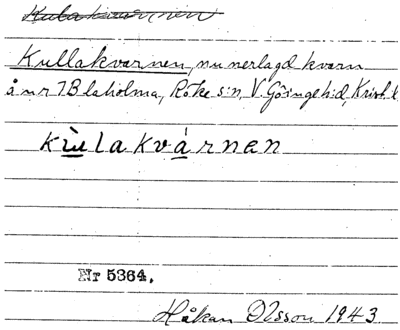 Kullakvarnen, nu nerlagd kvarn
å nr 7 B laholma, Röke s:n, V. Göinge h:d, Krist. l.
kùulakvárnen
Nr 5364.
Håkan Olsson 1943